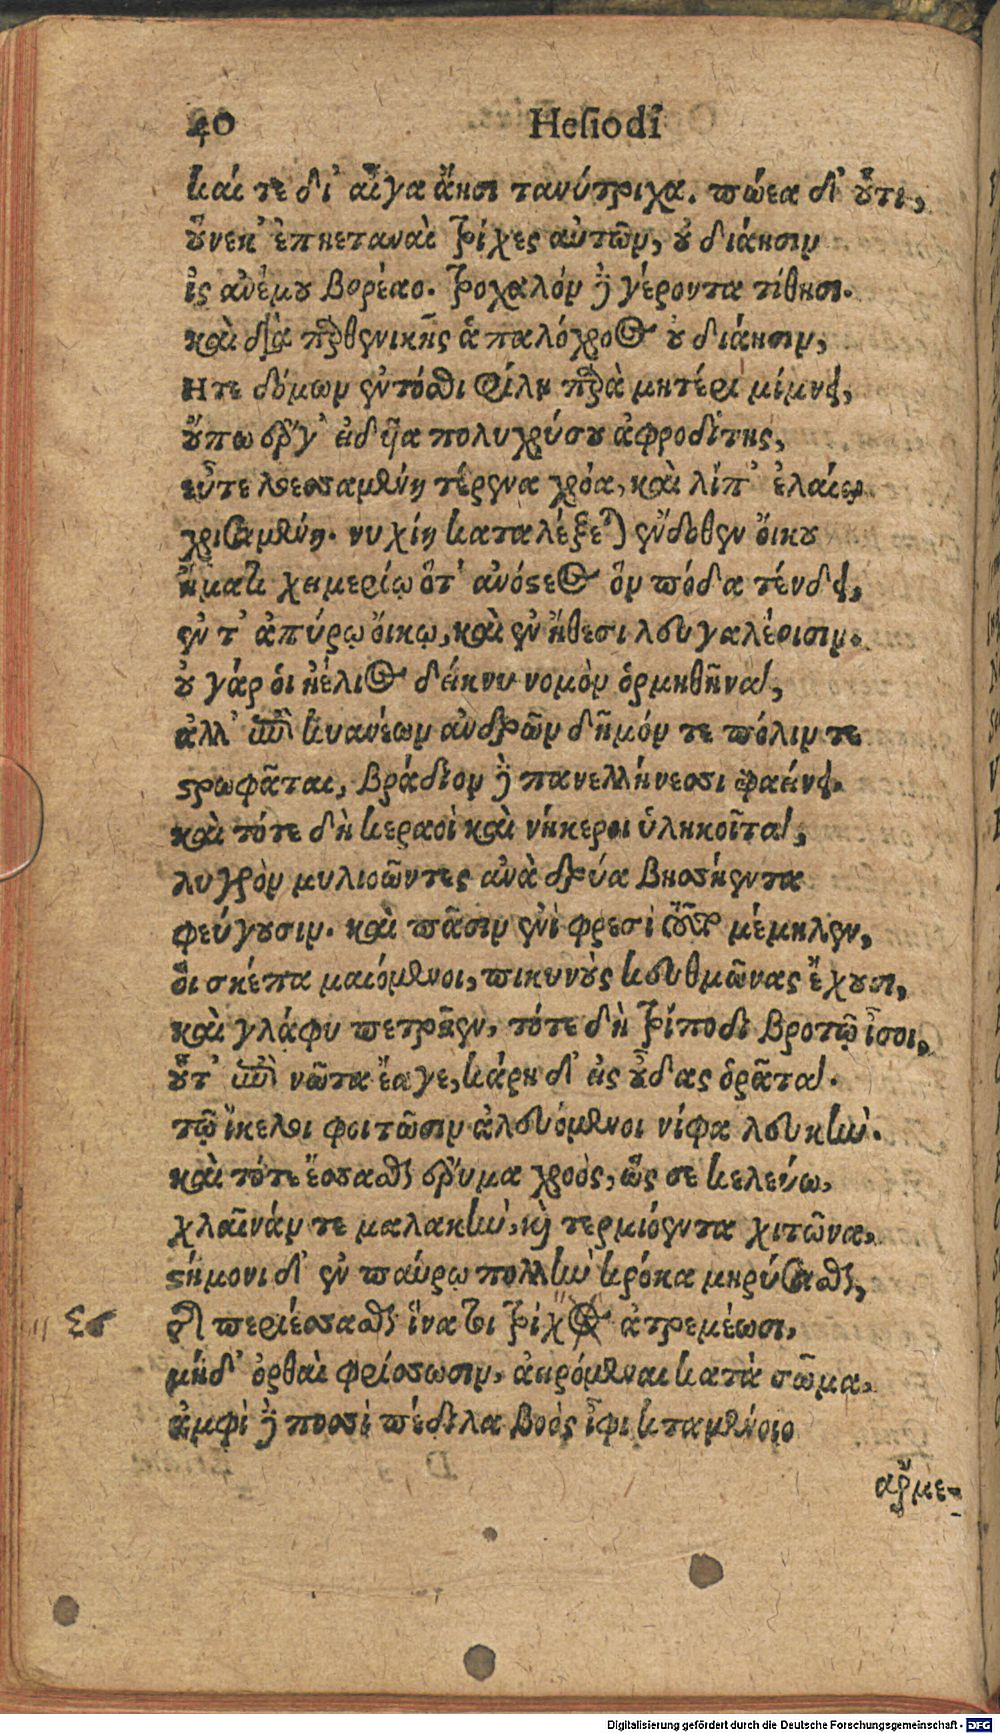 40 Hesiodi
καί τε δι' αἶγα ἄησι τανύτριχα. πώεα δ' οὔτι,
οὕνεκ' ἐπηεταναὶ τρίχες αὐτῶν, οὐ διάησιν
ἲς ἀνέμου βορέαο. τροχαλὸν δὲ γέροντα τίθησι.
καὶ διὰ παρθενικῆς ἁπαλόχροος οὐ διάησιν,
Ητε δόμων ἔντοσθι φίλῃ παρὰ μητέρι μίμνει,
οὔπω ἔργ' εἰδυῖα πολυχρύσου ἀφροδίτης,
εὖτε λοεσσαμένη τέρενα χρόα, καὶ λίπ' ἐλαίῳ
χρισαμένη. νυχίη καταλέξεται ἔνδοθεν οἴκου
ἤματι χειμερίῳ ὅτ' ἀνόστεος ὃν πόδα τένδει,
ἔν τ' ἀπύρῳ οἴκῳ, καὶ ἐν ἤθεσι λευγαλέοισιν.
οὐ γάρ οἱ ἠέλιος δείκνυ νομὸν ὁρμηθῆναι,
ἀλλ' ἐπὶ κυανέων ἀνδρῶν δῆμόν τε πόλιν τε
στρωφᾶται, βράδιον δὲ πανελλήνεσσι φαείνει.
καὶ τότε δὴ κεραοὶ καὶ νήκεροι ὑληκοῖται,
λυγρὸν μυλιοῶντες ἀνὰ δρύα βησσήεντα
φεύγουσιν. καὶ πᾶσιν ἐνὶ φρεσὶ τοῦτο μέμηλεν,
οἳ σκέπα μαιόμενοι, πικυνοὺς κευθμῶνας ἔχουσι,
καὶ γλάφυ πετρῆεν, τότε δὴ τρίποδι βροτῷ ἶσοι,
οὗτ' ἐπὶ νῶτα ἔαγε, κάρη δ' εἰς οὖδας ὁρᾶται.
τῷ ἴκελοι φοιτῶσιν ἀλευόμενοι νίφα λευκήν.
καὶ τότε ἕσσασθαι ἔρυμα χροὸς, ὥς σε κελεύω,
χλαῖνάν τε μαλακήν, καὶ τερμιόεντα χιτῶνα,
στήμονι δ' ἐν παύρῳ πολλὴν κρόκα μηρύσασθαι,
τὴν περιέσσασθαι ἵνα τοι τρίχες ἀτρεμέωσι,
μήδ' ὀρθαὶ φρίσσωσιν, ἀειρόμεναι κατὰ σῶμα,
ἀμφὶ δὲ ποσσὶ πέδιλα βοὸς ἶφι κταμένοιο
ἄρμε-
Digitalisierung gefördert durch die Deutsche Forschungsgemeinschaft - DFG